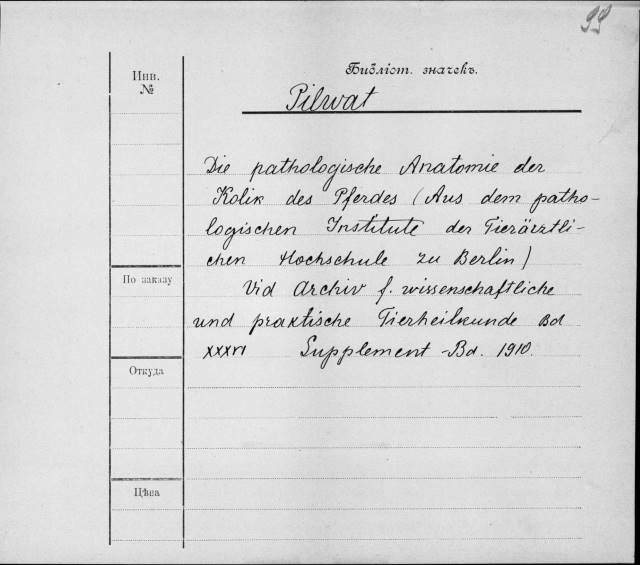 99
Библіот. значекъ.
Инв.
№
Pilwat
Die pathologische Anatomie der
Kolik des Pferdes (Aus dem patho-
logischen Institute der Tierärztli-
chen Hochschule zu Berlin)
По заказу
Vid Archiv f. wissenschaftliche
und praktische Tierheilkunde Bd
XXXVI Supplement-Bd. 1910.
Откуда
Цѣна